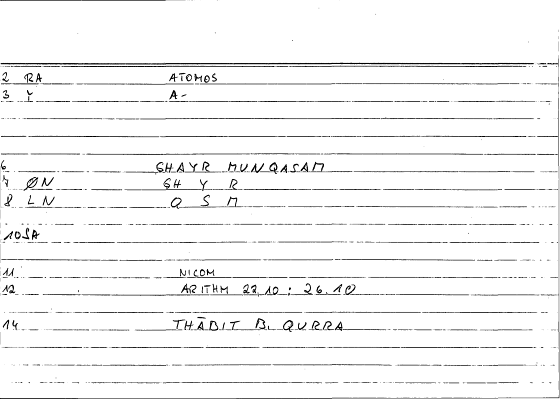 2 RA ATOMOS
3 Y A-
6 GHAYR MUNQASAM
7 ØN GH Y R
8 LN Q S M
10 SA
11 NICOM
12 ARITHM 22,10 : 26.10
14 THĀBIT B. QURRA